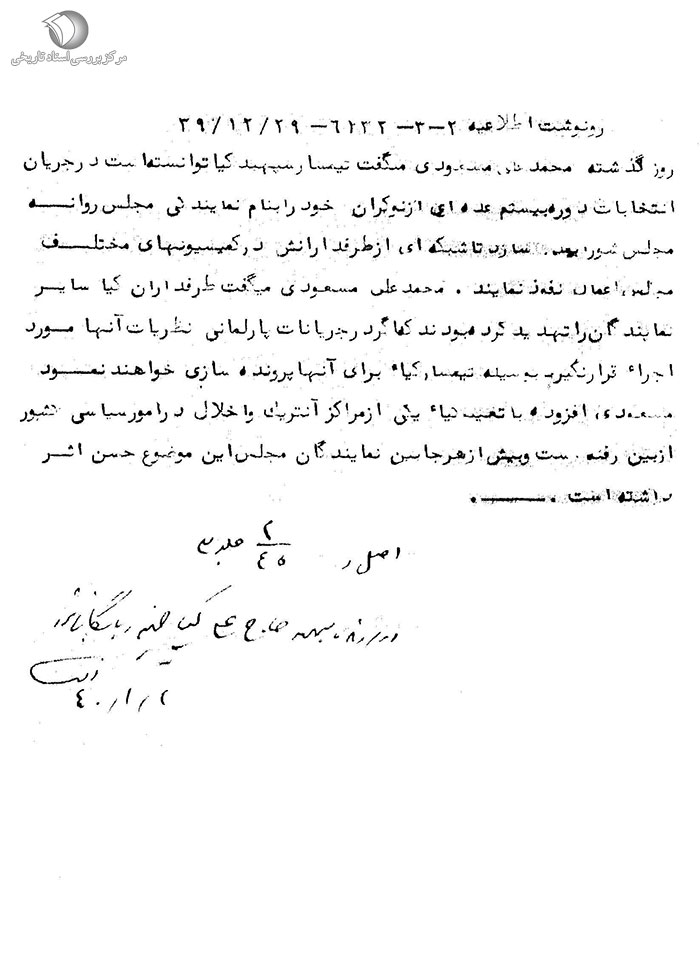 مرکز بررسی اسناد تاریخی
رونوشت اطلاعیه ۲-۳-۶۲۳۲-۳۹/۱۲/۲۹
روز گذشته محمد علی مسعودی میگفت تیمسار سپهبد کیا توانسته است در جریان
انتخابات دوره بیستم عده ای از نوکران خود را بنام نمایندگی مجلس روانه
مجلس شورا سازد تا شبکه ای از طرفدارانش در کمیسیونهای مختلف
مجلس اعمال نفوذ نمایند . محمد علی مسعودی میگفت طرفداران کیا سایر
نمایندگان را تهدید کرده بودند که اگر در جریانات پارلمانی نظریات آنها مورد
اجراء قرار نگیرد بوسیله تیمسار کیا برای آنها پرونده سازی خواهند نمود
مسعودی افزوده با کیا یکی از مراکز آنتریک و اخلال در امور سیاسی کشور
از بین رفته است و بیش از هر جا بین نمایندگان مجلس این موضوع حسن اثر
داشته است .
اصل در ۲/۴۵ جلد
حاج علی کیا
۴۰/۱/۲